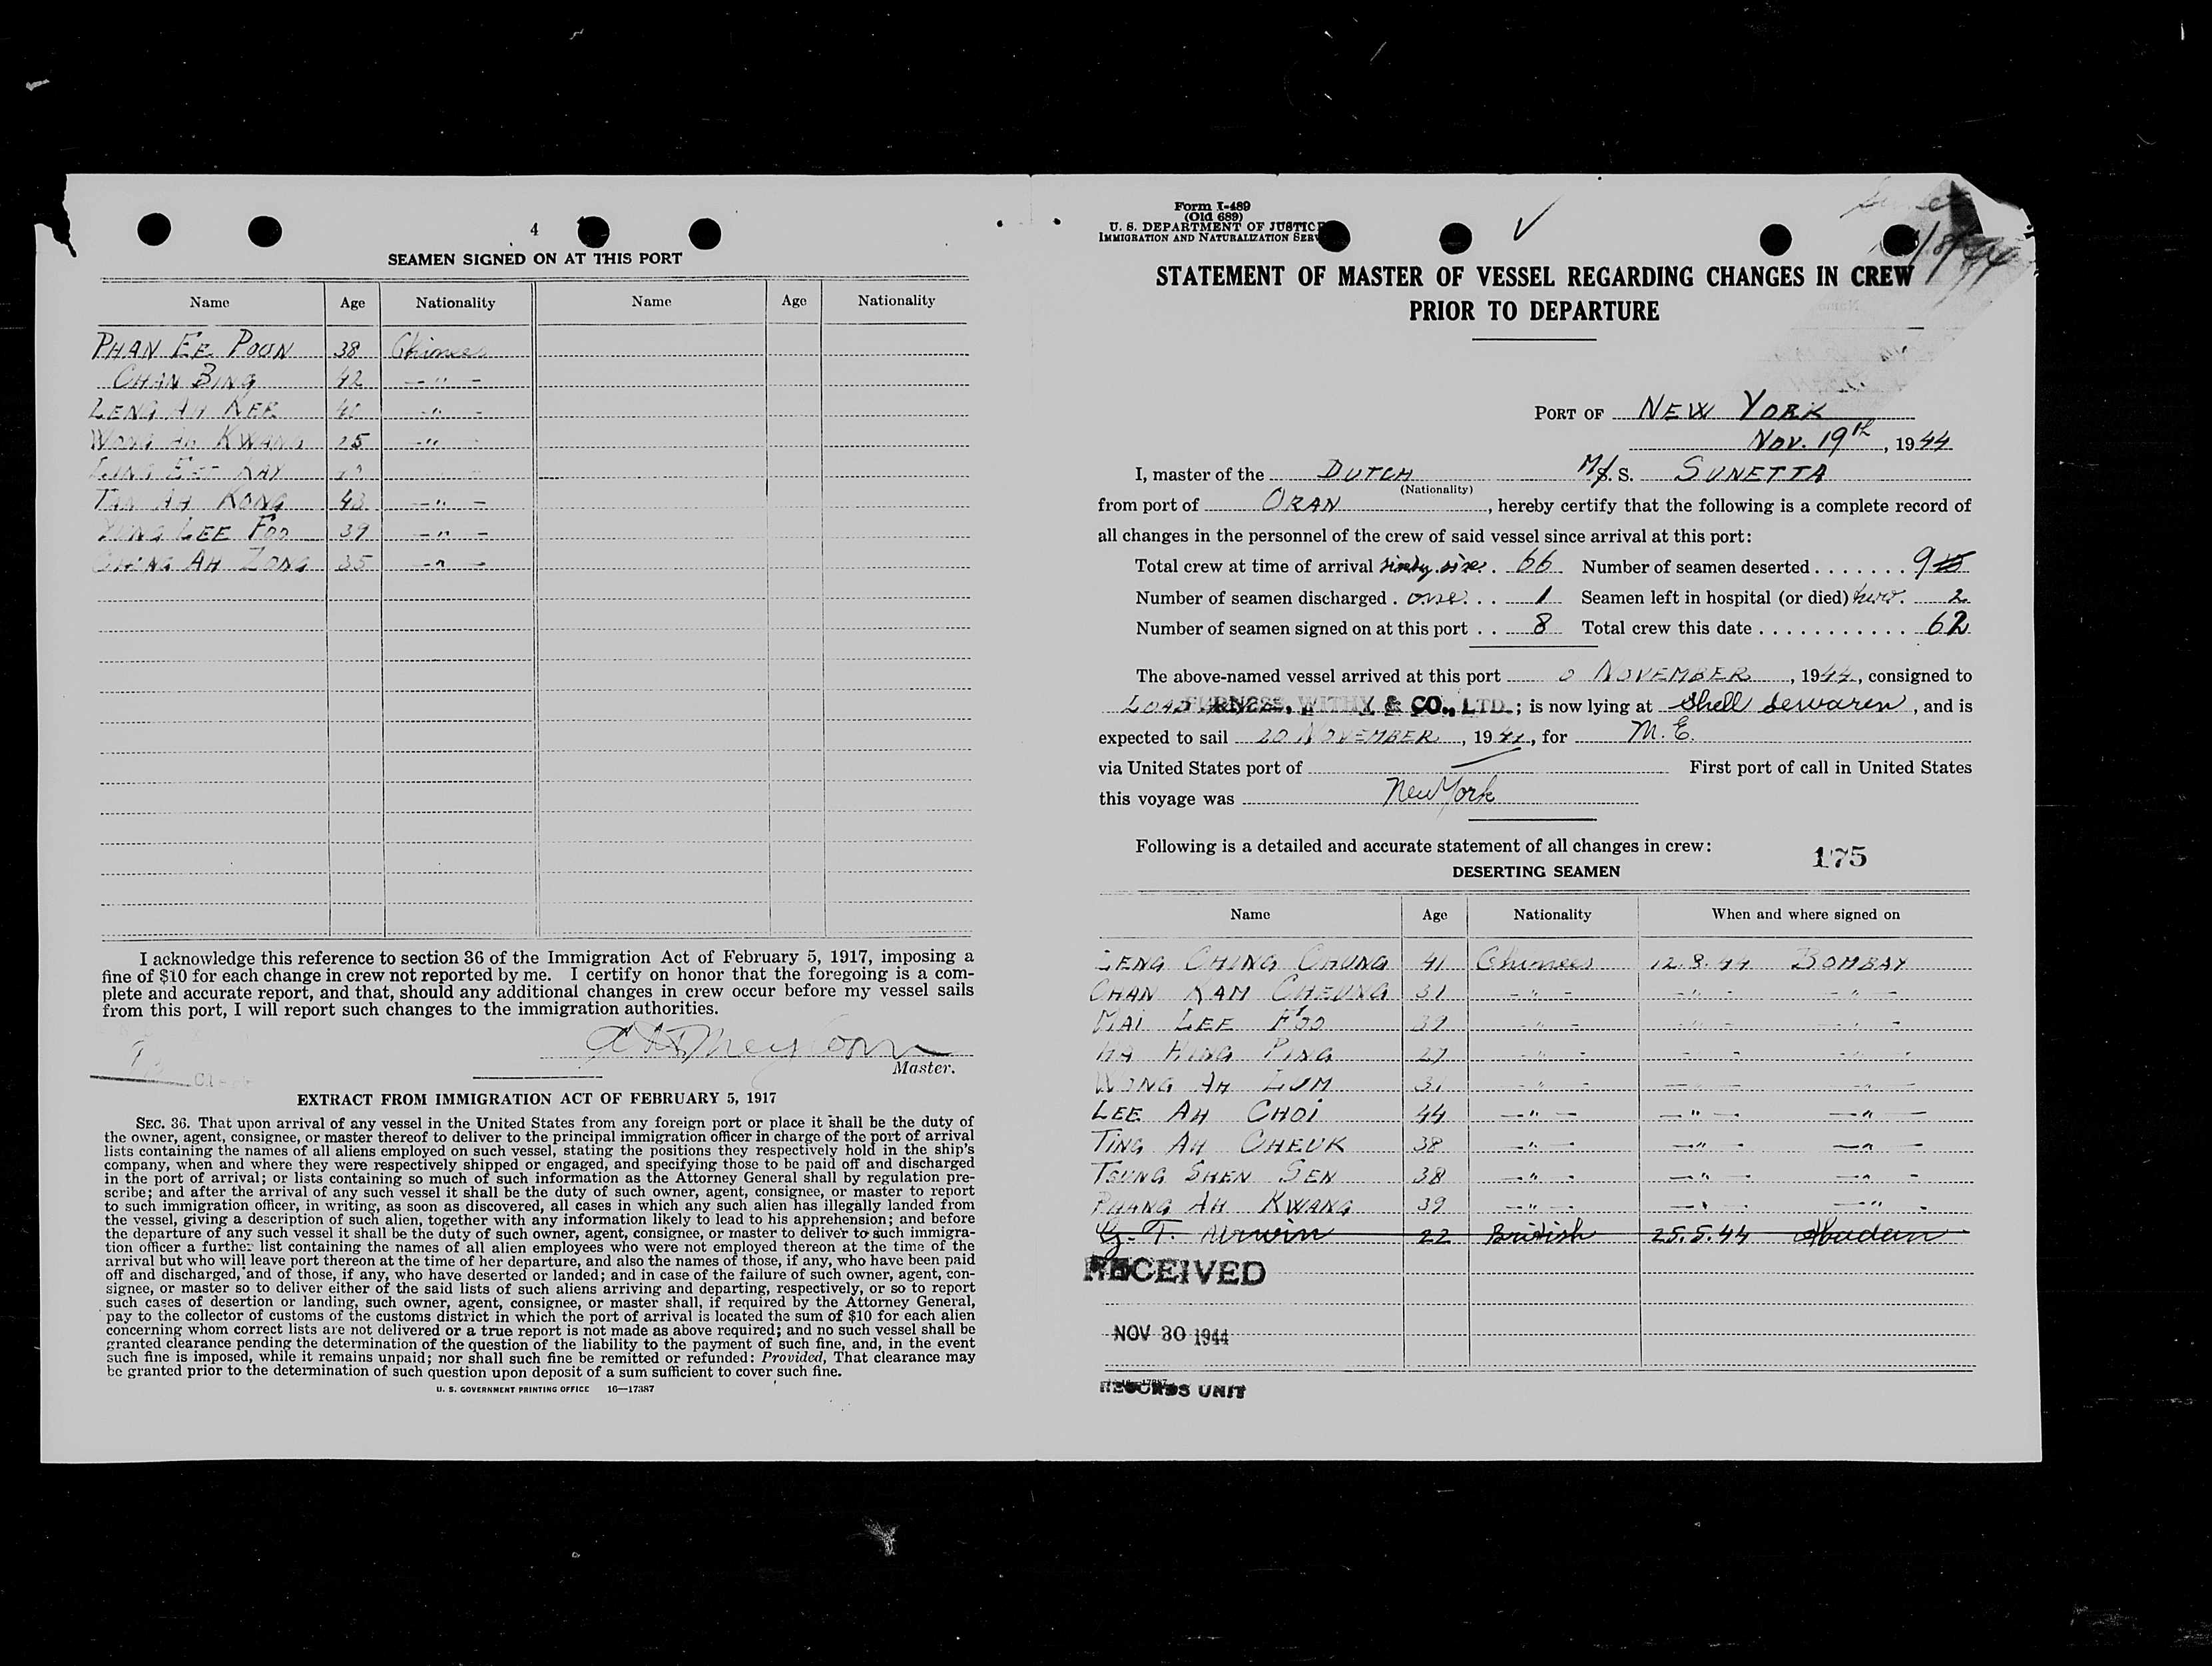 4
SEAMEN SIGNED ON AT THIS PORT
Name Age Nationality Name Age Nationality
PHAN EE POON 38 Chinees
CHAN BING 42 — " —
LENG AH KEE 40 — " —
WONG AH KWANG 25 — " —
LING EE KAY
TAN AH KONG 43 — " —
YUNG LEE FOO 39 — " —
CHUNG AH ZONG 35 — " —
I acknowledge this reference to section 36 of the Immigration Act of February 5, 1917, imposing a
fine of $10 for each change in crew not reported by me. I certify on honor that the foregoing is a com-
plete and accurate report, and that, should any additional changes in crew occur before my vessel sails
from this port, I will report such changes to the immigration authorities.
Master.
EXTRACT FROM IMMIGRATION ACT OF FEBRUARY 5, 1917
SEC. 36. That upon arrival of any vessel in the United States from any foreign port or place it shall be the duty of
the owner, agent, consignee, or master thereof to deliver to the principal immigration officer in charge of the port of arrival
lists containing the names of all aliens employed on such vessel, stating the positions they respectively hold in the ship's
company, when and where they were respectively shipped or engaged, and specifying those to be paid off and discharged
in the port of arrival; or lists containing so much of such information as the Attorney General shall by regulation pre-
scribe; and after the arrival of any such vessel it shall be the duty of such owner, agent, consignee, or master to report
to such immigration officer, in writing, as soon as discovered, all cases in which any such alien has illegally landed from
the vessel, giving a description of such alien, together with any information likely to lead to his apprehension; and before
the departure of any such vessel it shall be the duty of such owner, agent, consignee, or master to deliver to such immigra-
tion officer a further list containing the names of all alien employees who were not employed thereon at the time of the
arrival but who will leave port thereon at the time of her departure, and also the names of those, if any, who have been paid
off and discharged, and of those, if any, who have deserted or landed; and in case of the failure of such owner, agent, con-
signee, or master so to deliver either of the said lists of such aliens arriving and departing, respectively, or so to report
such cases of desertion or landing, such owner, agent, consignee, or master shall, if required by the Attorney General,
pay to the collector of customs of the customs district in which the port of arrival is located the sum of $10 for each alien
concerning whom correct lists are not delivered or a true report is not made as above required; and no such vessel shall be
granted clearance pending the determination of the question of the liability to the payment of such fine, and, in the event
such fine is imposed, while it remains unpaid; nor shall such fine be remitted or refunded: Provided, That clearance may
be granted prior to the determination of such question upon deposit of a sum sufficient to cover such fine.
U. S. GOVERNMENT PRINTING OFFICE 16—17387
Form I-489
(Old 689)
U. S. DEPARTMENT OF JUSTICE
IMMIGRATION AND NATURALIZATION SERV
STATEMENT OF MASTER OF VESSEL REGARDING CHANGES IN CREW
PRIOR TO DEPARTURE
PORT OF NEW YORK
Nov. 19th, 1944
I, master of the DUTCH M/S. S. SUNETTA
(Nationality)
from port of ORAN, hereby certify that the following is a complete record of
all changes in the personnel of the crew of said vessel since arrival at this port:
Total crew at time of arrival sixty six. 66 Number of seamen deserted . . . . . . . 9
Number of seamen discharged . one . . 1 Seamen left in hospital (or died) two. 2
Number of seamen signed on at this port . . 8 Total crew this date . . . . . . . . . . . . 62
The above-named vessel arrived at this port NOVEMBER, 1944, consigned to
FURNESS, WITHY & CO., LTD.; is now lying at Shell Sewaren, and is
expected to sail 20 NOVEMBER, 1944, for M. E.
via United States port of — First port of call in United States
this voyage was New York
Following is a detailed and accurate statement of all changes in crew:
175
DESERTING SEAMEN
Name Age Nationality When and where signed on
LENG CHING CHUNG 41 Chinees 12.8.44 BOMBAY
CHAN KAM CHEUNG 31 — " — — " — — " —
MAI LEE FOO 39 — " — — " — — " —
HA HING PING 27 — " — — " — — " —
WONG AH LUM 31 — " — — " — — " —
LEE AH CHOI 44 — " — — " — — " —
TING AH CHEUK 38 — " — — " — — " —
TSUNG SHEN SEN 38 — " — — " — — " —
PHANG AH KWANG 39 — " — — " — — " —
G. T. 22 British 25.5.44 Abadan
RECEIVED
NOV 30 1944
RECORDS UNIT